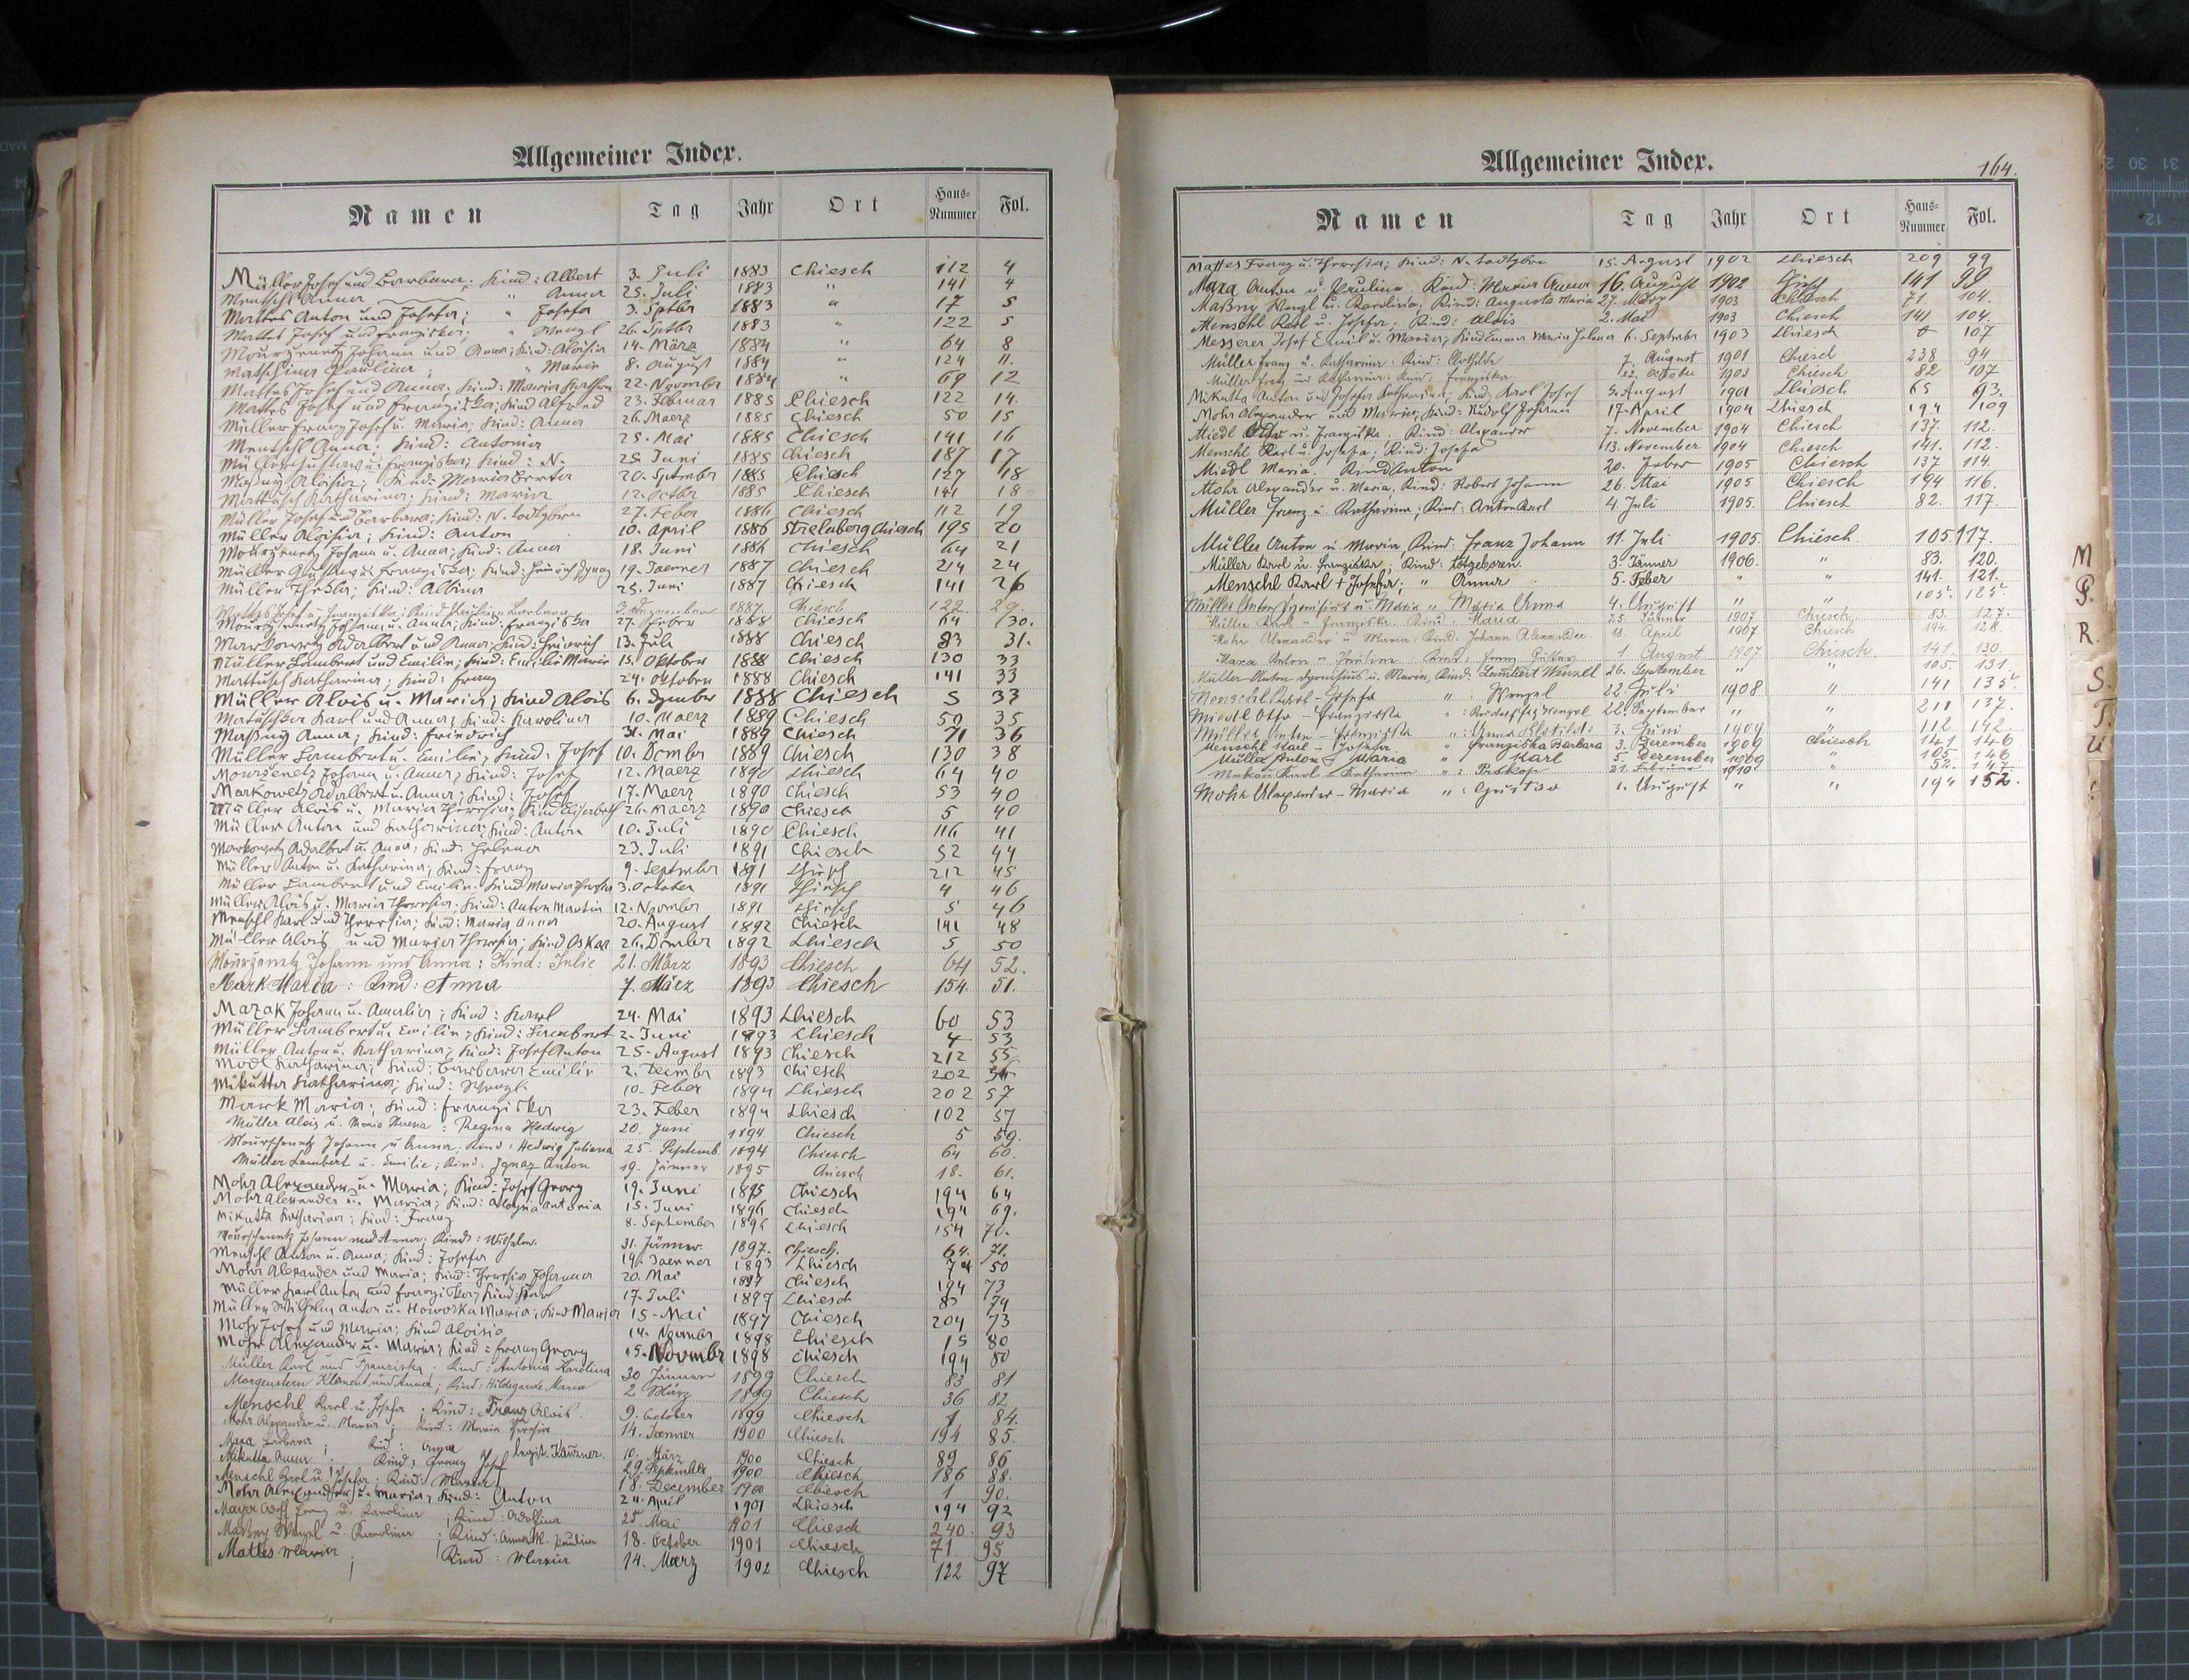 Allgemeiner Index.
Namen Tag Jahr Ort Haus-Nummer Fol.
Müller Josef und Barbara. Kind: Albert 3. Juli 1883 Chiesch 112 4
Mentschl Anna " Anna 25. Juli 1883 " 141 4
Mattes Anton und Josefa; " Josefa 3. Sptbr 1883 " 17 5
Mattes Josef und Franziska; " Wenzl 26. Sptbr 1883 " 122 5
Mourzenetz Johann und Anna; Kind: Aloisia 14. März 1884 " 64 8
Matschiner Paulina; " Maria 8. August 1884 " 124 11.
Mattes Josef und Anna; Kind: Maria 22. Novembr 1884 " 69 12
Mattes Josef und Franziska; Kind Alfred 23. Februar 1885 Chiesch 122 14.
Müller Franz Josef u. Maria; Kind: Anna 26. Maerz 1885 Chiesch 50 15
Mentschl Anna; Kind: Antonia 25. Mai 1885 Chiesch 141 16
Müller Gustav u. Franziska; Kind: N. 25 Juni 1885 Chiesch 187 17
Maßny Aloisia; Kind: Maria Berta 20. Septembr 1885 Chiesch 127 18
Mattusch Katharina; Kind: Maria 12. Octbr 1885 Chiesch 141 18
Müller Josef und Barbara; Kind: N. todtgeboren 27. Feber 1886 Chiesch 112 19
Müller Aloisia; Kind: Anton 10. April 1886 Strelnberg Chiesch 195 20
Mourzenetz Johann u. Anna; Kind: Anna 18. Juni 1886 Chiesch 64 21
Müller Gustav u. Franziska; Kind: Heinrich Ignaz 19. Jaenner 1887 Chiesch 214 24
Müller Thekla; Kind: Albina 25. Juni 1887 Chiesch 141 26
Mattes Josef u. Franziska; Kind Paulina Barbara 3. Dezember 1887. Chiesch 122. 29.
Mourzenetz Johann u. Anna; Kind: Franziska 27. Feber 1888 Chiesch 64 30.
Markowetz Adalbert und Anna; Kind: Heinrich 13. Juli 1888 Chiesch 83 31.
Müller Lambert und Emilie; Kind: Emilie Maria 15. Oktober 1888 Chiesch 130 33
Mattusch Katharina; Kind: Franz 24. Oktober 1888 Chiesch 141 33
Müller Alois u. Maria; Kind Alois 6. Dzember 1888 Chiesch 5 33
Matuschka Karl und Anna; Kind: Karolina 10. Maerz 1889 Chiesch 50 35
Maßny Anna; Kind: Friedrich 31. Mai 1889 Chiesch 71 36
Müller Lambert u. Emilie; Kind: Josef 10. Dcmbr 1889 Chiesch 130 38
Mourzenetz Johann u. Anna; Kind: Josef 12. Maerz 1890 Chiesch 64 40
Markowetz Adalbert u. Anna; Kind: Josef 17. Maerz 1890 Chiesch 53 40
Müller Alois u. Maria Theresia; Kind Elisabeth 26. Maerz 1890 Chiesch 5 40
Müller Anton und Katharina; Kind: Anton 10. Juli 1890 Chiesch 116 41
Markowetz Adalbert u. Anna; Kind: Helena 23. Juli 1891 Chiesch 52 44
Müller Anton u. Katharina; Kind: Franz 9. Septembr 1891 Chiesch 212 45
Müller Lambert und Emilie. Kind Maria Theresia 3. October 1891 Chiesch 4 46
Müller Alois u. Maria Theresia; Kind: Anton Martin 12. Novmber 1891 Chiesch 5 46
Menschl Karl und Theresia; Kind: Maria Anna 20. August 1892 Chiesch 141 48
Müller Alois und Maria Theresia; Kind Oskar 26. Dcmbr 1892 Chiesch 5 50
Mourzenetz Johann und Anna: Kind: Julie 21. März 1893 Chiesch 64 52.
Mark Maria: Kind: Anna 7. März 1893 Chiesch 154. 51.
Mazak Johann u. Amalia; Kind: Karl 24. Mai 1893 Chiesch 60 53
Müller Lambert u. Emilie; Kind: Lambert 2. Juni 1893 Chiesch 4 53
Müller Anton u. Katharina; Kind: Josef Anton 25. August 1893 Chiesch 212 55
Modl Katharina; Kind: Barbara Emilie 2. Decmbr 1893 Chiesch 202 56
Mikutta Katharina; Kind: Wenzl. 10. Feber 1894 Chiesch 202 57
Mark Maria; Kind: Franziska 23. Feber 1894 Chiesch 102 57
Müller Alois u. Maria Theresia: Regina Hedwig 20. Juni 1894 Chiesch 5 59.
Mourschenetz Johann u Anna. Kind: Hedwig Juliana 25. Septemb. 1894 Chiesch 64 60.
Müller Lambert u. Emilie; Kind: Ignaz Anton 19. Jänner 1895 Chiesch 18. 61.
Mohr Alexander u. Maria; Kind: Josef Georg 19. Juni 1895 Chiesch 194 64
Mohr Alexander u. Maria; Kind: Aloysia Antonia 15. Juni 1896 Chiesch 194 69.
Mikutta Katharina; Kind: Franz 8. September 1896 Chiesch 154 70.
Mourschenetz Johann und Anna; Kind: Wilhelm. 31. Jänner. 1897. Chiesch. 64. 71.
Menschl Anton u. Anna; Kind: Josefa 19. Jaenner 1893 Chiesch 50
Mohr Alexander und Maria; Kind: Theresia Johanna 20. Mai 1897 Chiesch 194 73
Müller Karl Anton und Franziska; Kind: Karl 17. Juli 1897 Chiesch 83 74
Müller Wilhelm Anton u. Howorka Maria; Kind Maria 15. Mai 1897 Chiesch 204 73
Mohr Josef und Maria; Kind Aloisia 14. 1898 Chiesch 15 80
Mohr Alexander u. Maria; Kind: Franz Georg 15. Novmbr 1898 Chiesch 194 80
Müller Karl und Franziska. Kind: Antonia Karolina 30 Jänner 1899 Chiesch 83 81
Morgenstern Klement und Anna; Kind: Hildegarde Maria 2 März 1899 Chiesch 36 82
Menschl Karl u. Josefa. Kind: Franz Alois. 9. October 1899 Chiesch 1 84.
Mohr Alexander u. Maria; Kind: Maria Theresia 14. Jänner 1900 Chiesch 194 85.
Maxa Barbara; Kind: Anna legit. 10. März 1900 Chiesch 89 86
Mikutta Anna: Kind: Franz Josef 29. September 1900 Chiesch 186 88.
Menschl Karl u. Josefa. Kind: 18. December 1900 Chiesch 1 90.
Mohr Alexander u. Maria; Kind: Anton 24. April 1901 Chiesch 194 92
Mayer Adolf Franz u. Karolina; Kind: Adolfina 25. Mai 1901 Chiesch 240. 93
Maßny Wenzl u. Karolina; Kind: Anna M. Paulina 18. October 1901 Chiesch 71. 95
Mattes Maria; Kind: Maria 14. Maerz 1902 Chiesch 122 97
Allgemeiner Index. 164.
Namen Tag Jahr Ort Haus-Nummer Fol.
Mattes Franz u. Theresia; Kind: N. todtgeboren 15. August 1902 Chiesch 209 99
Maxa Anton u Paulina Kind: Maria Anna 16. August 1902 Chiesch 141 99
Maßny Wenzl u. Karolina. Kind: Augusta Maria 27. März 1903 Chiesch 71. 104.
Menschl Karl u. Josefa; Kind: Alois 2. Mai 1903 Chiesch 141 104.
Messerer Josef Emil u. Maria; Kind Emma Maria Helena 6. September 1903 Chiesch 107
Müller Franz u. Katharina: Kind: Clothilde 7. August 1901 Chiesch 238 94
Müller Franz und Katharina: Kind: Franziska 12. October 1903 Chiesch 82 107
Mikutta Anton und Josefa Katharina; Kind: Karl Josef 5. August 1901 Chiesch 65 93.
Mohr Alexander und Maria; Kind: Rudolf Johann 17. April 1904 Chiesch 194 109
Miedl Otto u. Franziska; Kind: Alexander 7. November 1904 Chiesch 137. 112.
Menschl Karl u. Josefa; Kind: Josefa 13. November 1904 Chiesch 141. 112.
Miedl Maria. Kind Anton 20. Feber 1905 Chiesch 137 114.
Mohr Alexander u. Maria, Kind: Robert Johann 26. Mai 1905 Chiesch 194 116.
Müller Franz u Katharina; Kind: Anton Karl 4 Juli 1905. Chiesch 82. 117.
Müller Anton u Maria, Kind: Franz Johann 11. Juli 1905 Chiesch 105. 117.
Müller Karl u. Franziska; Kind: totgeboren. 3. Jänner 1906. " 83. 120.
Menschl Karl + Josefa; " Anna 5. Feber " " 141. 121.
Müller Anton Dyonisius u. Maria " Maria Anna 4. August " " 105. 125.
Müller Karl " Franziska Kind: Maria 25. Jänner 1907 Chiesch 83. 127.
Mohr Alexander u Maria. Kind. Johann Alexander 18. April 1907 Chiesch 194. 128.
Maxa Anton u Paulina: Kind: Franz 1. August 1907 Chiesch. 141. 130.
Müller Anton Dyonisius u. Maria, Kind: Lambert Wenzel 26. September " " 105. 131.
Menschl Karl - Josefa " : Wenzel 22. Juli 1908 " 141 135.
Miedl Otto - Franziska " : Rudolf Josef Wenzel 22. September " " 211 137.
Müller Anton - Franziska " : Anna Klotilde 3. Juni 1909 " 112 142
Menschl Karl - Josefa " Franziska Barbara 3. Dezember 1909 Chiesch 141 146
Müller Anton + Maria " Karl 5. Dezember 1909 105 146
Karl - Katharina " : Prokop 21. Februar 1910 " 52. 147
Mohr Alexander - Maria " : Gustav 1. August " " 194 152.
M
P.
R.
S.
T.
U